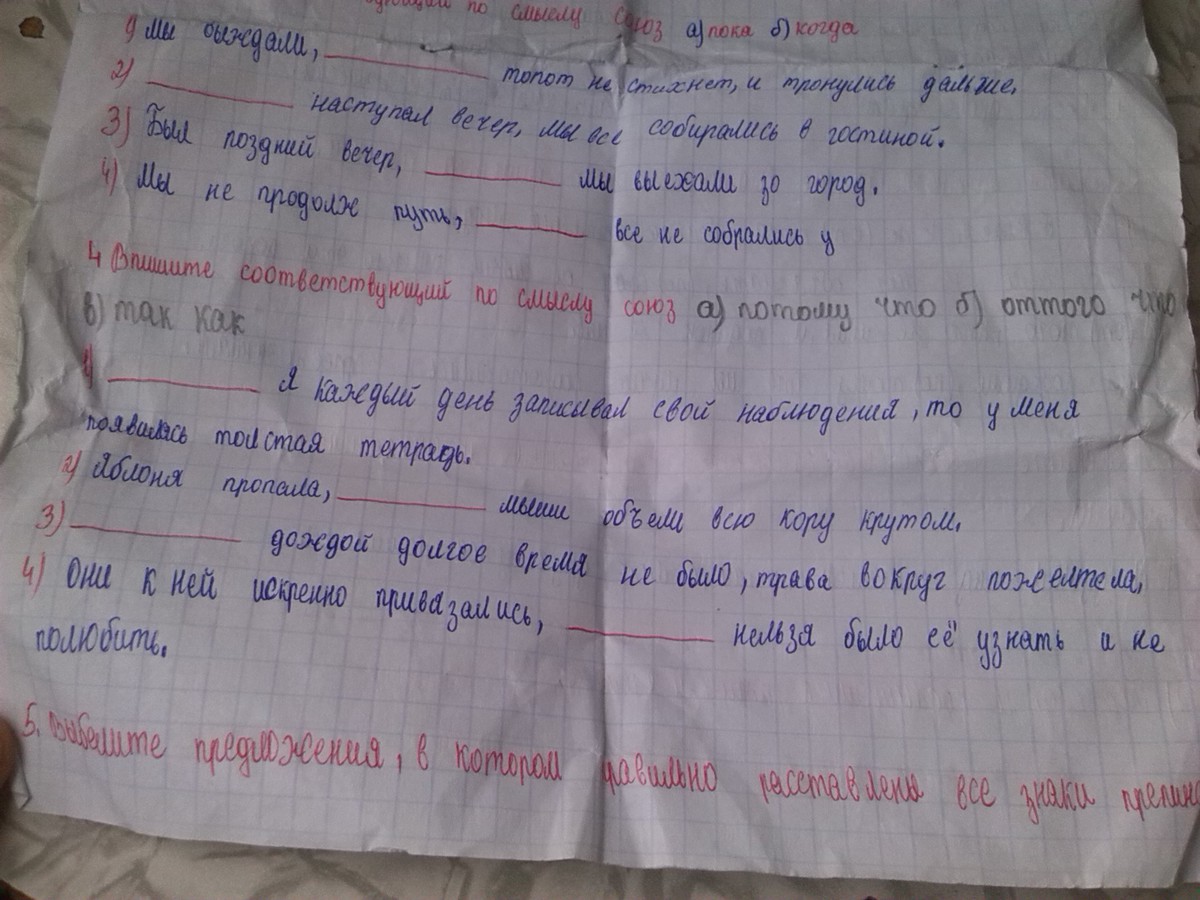 по смыслу союз а) пока б) когда
1) Мы выждали, топот не стихнет, и тронулись дальше.
2) наступал вечер, мы все собирались в гостиной.
3) Был поздний вечер, мы выехали зо город.
4) Мы не продолж путь, все не собрались у
4 Впишите соответствующий по смыслу союз а) потому что б) оттого что
в) так как
1) Я каждый день записывал свой наблюдения, то у меня
появилась толстая тетрадь.
2) Яблоня пропала, мыши объели всю кору крутом.
3) дождой долгое время не было, трава вокруг пожелтела,
4) Они к ней искренно привязались, нельзя было её узнать и не
полюбить.
5. предложения, в котором правильно расставлены все знаки